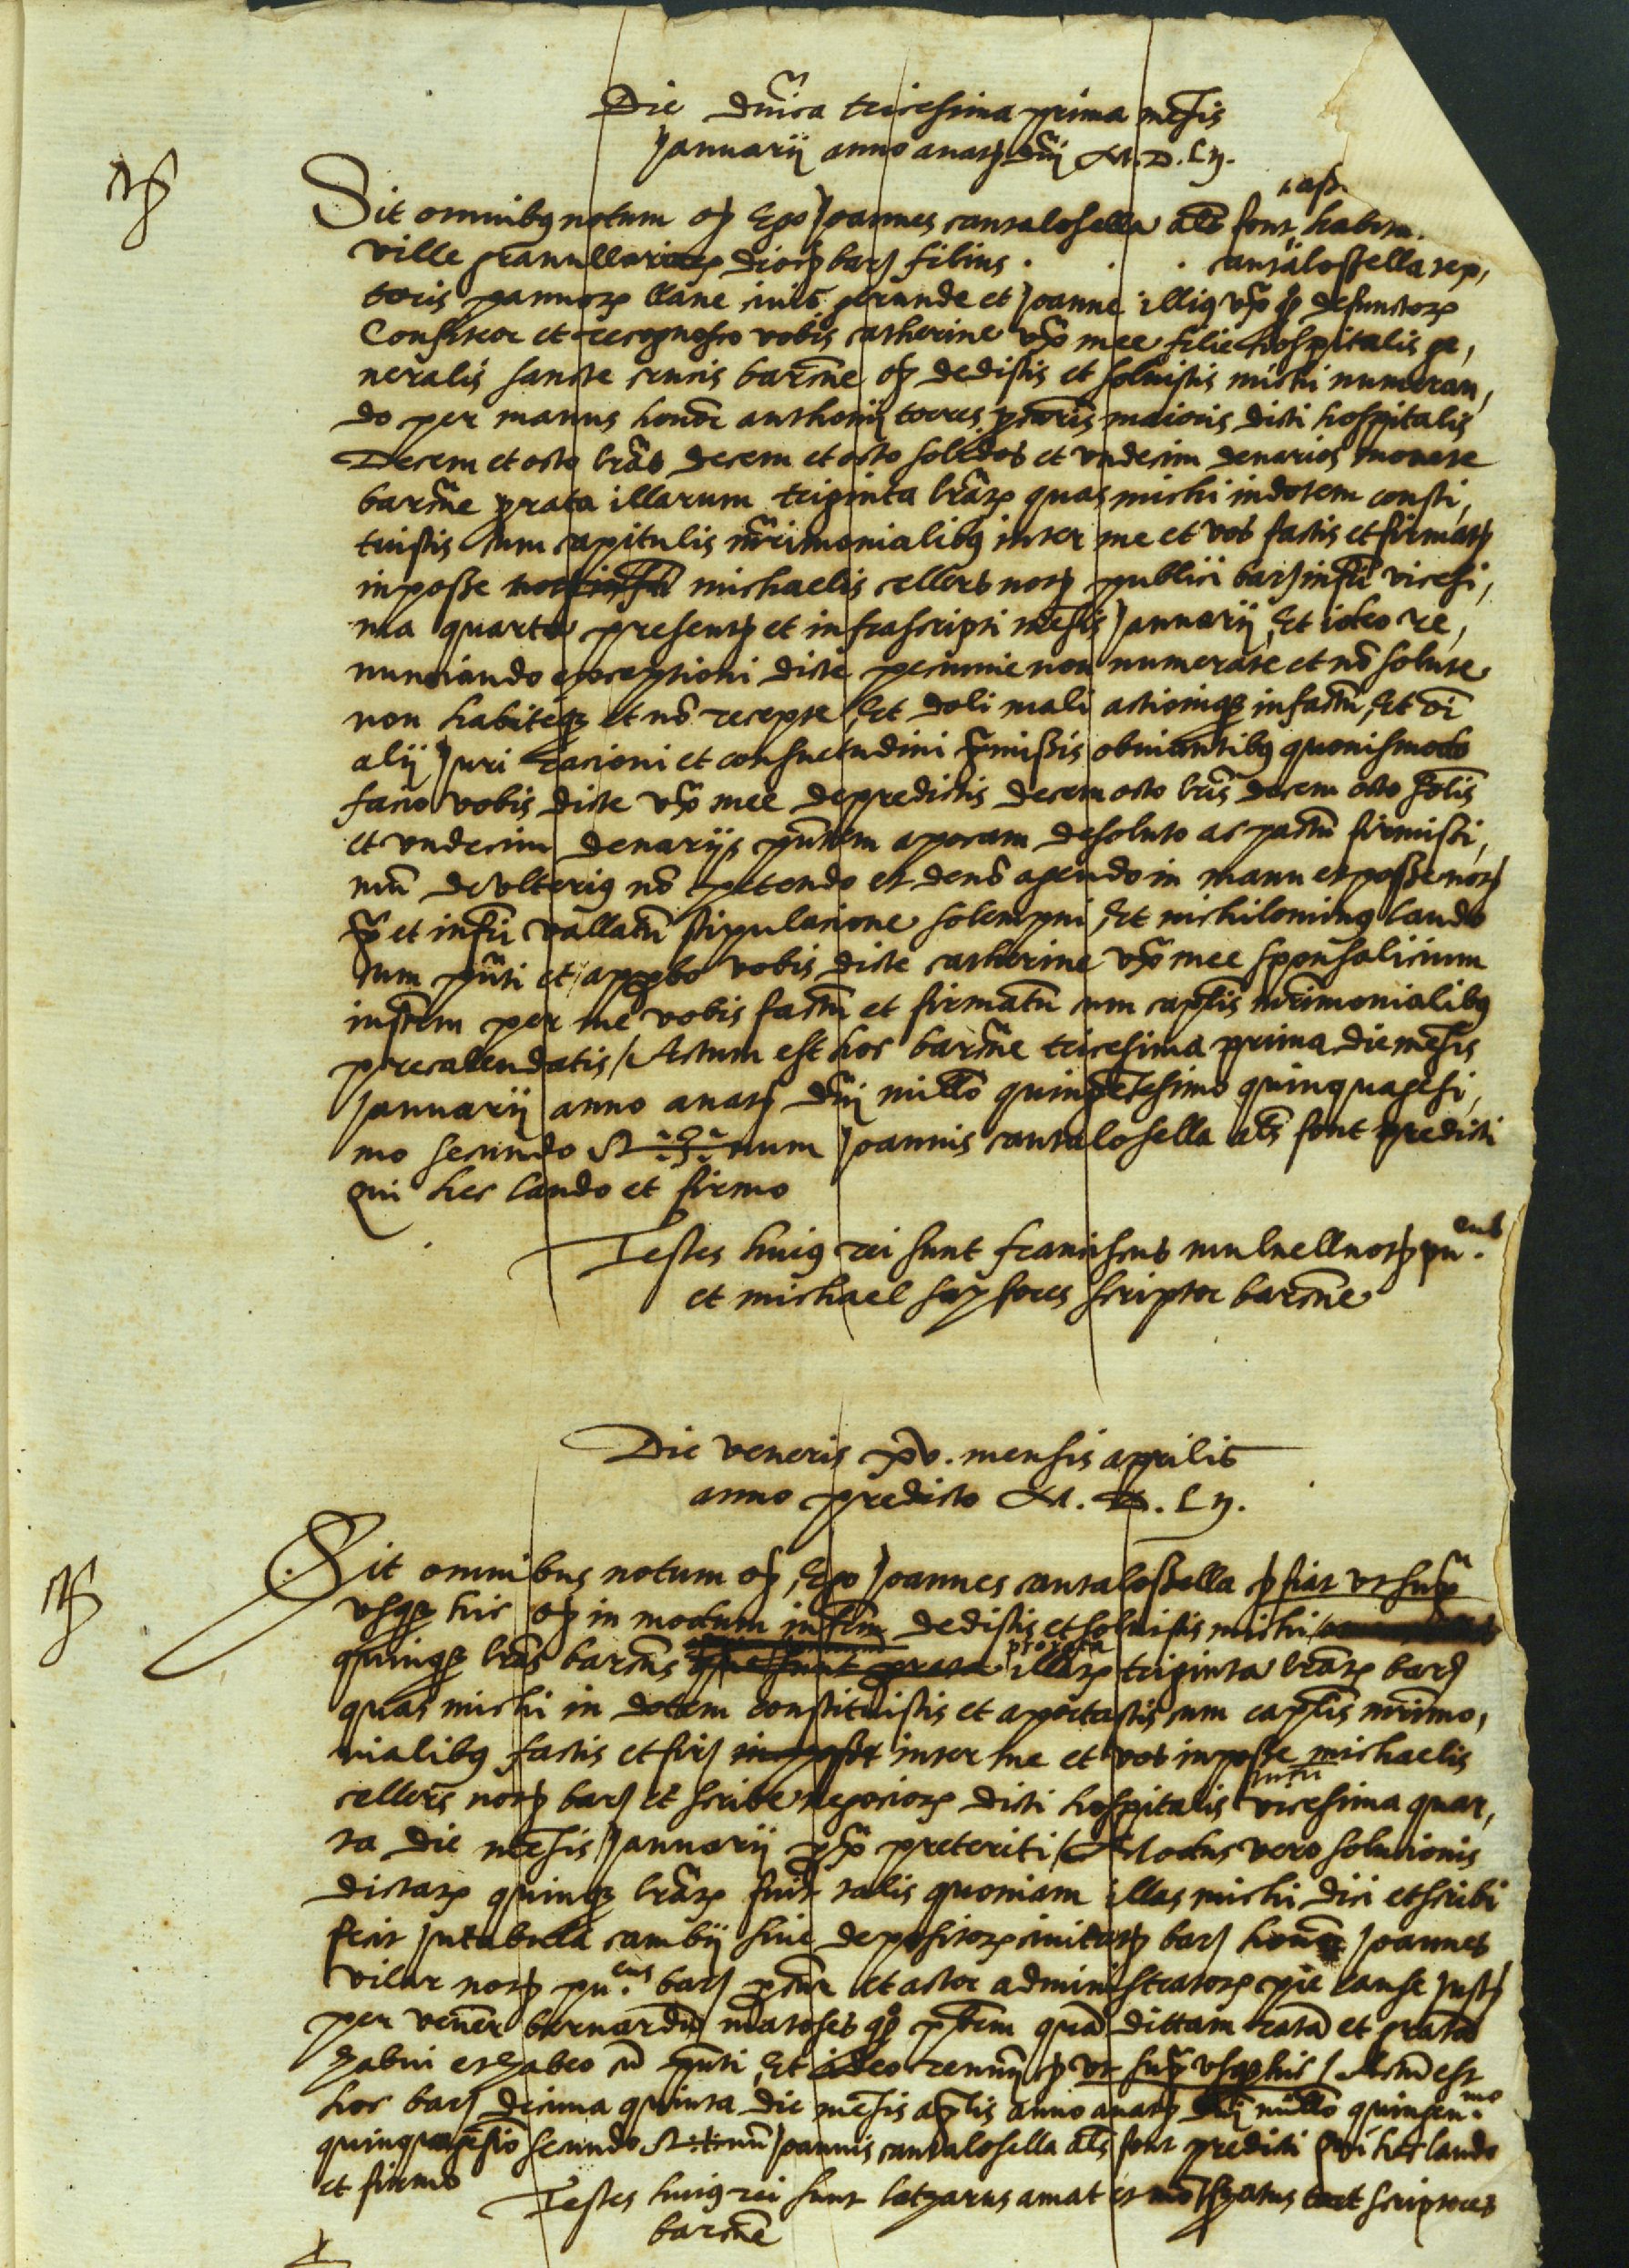 Die dnica tricesima prima mensis
Januarij anno a nat dni M.D.Lij.
Sit omnibus notum q Ego Joannes cantalosella als font habita.
ville granullariorum dioc bar filius . . . cantalosella rep,
toris pannorum llane civis gerunde et Joanne illius ux q defunctorum
Confiteor et recognosco vobis catherine ux mee filie hospitalis ge,
neralis sancte crucis barcne q dedistis et solvistis michi numeran,
do per manus honor anthonij torres prioris maioris dicti hospitalis
Decem et octo libras decem et octo solidos et undecim denarios monete
barcne prata illarum triginta librarum quas michi in dotem consti,
tuistis cum capitulis mrimonialibus inter me et vos factis et firmatis
in posse michaelis cellers not publici bar infri vicesi,
ma quarta presentis et infrascripti mensis Januarij, Et ideo re,
nunciando exceptioni dicte peccunie non numerate et no solute
non habiteque et no recepte, Et doli mali actionique in factu, Et oi
alij Juri racioni et consuetudini pmissis obviantibus quovismodo
facio vobis dicte ux mee de predictis decem octo libris decem octo solis
et undecim denarijs pntem apocam de soluto ac pactu firmissi,
mu de ulterius no petendo et de no agendo in manu et posse not
p et infri vallatu stipulacione solempni, Et nichilominus laudo
cum pnti et approbo vobis dicte catherine ux mee sponsalicium
instrm per me vobis factu et firmatu cum captlis mrimonialibus
precalendatis / Actum est hoc barcne tricesima prima die mensis
Januarij anno a nat dni millo quingetesimo quinquagesi,
mo secundo S num Joannis cantalosella als font predicti
qui hec laudo et firmo
Testes huius rei sunt franciscus mulnell not pu.
et michael saffores scriptor barcne
Die veneris xv. mensis aprilis
anno predicto M.D.Lij.
Sit omnibus notum q, Ego Joannes cantalossella p fiat ut supra
usque hic q in modum infrm dedistis et solvistis michi
quinque libras barcnes prorata illarum triginta librarum bar
quas michi in dotem constituistis et aportastis cum captlis mrimo,
nialibus factis et fir inter me et vos in posse michaelis
cellers not bar et scribe negociorum dicti hospitalis vicesima quar,
ta die mensis Januarij px preteriti / Modus vero solucionis
dictarum quinque librarum fuit talis quoniam illas michi dici et scribi
fecit in tabula cambij sive depositorum civitatis bar honor Joannes
vilar not pu. bar et actor administratorum pie cause
per vener bernardu matoses q quā dictam ratā et gratā
habui et habeo cū pnti, Et ideo renun p ut supra usque hic / Actu est
hoc bar decima quinta die mensis aplis anno a nat dni millo quingen.mo
quinquagesio secundo S nū Joannis cantalosella als font predicti qui hec laudo
et firmo
Testes huius rei sunt latzarus amat et scriptores
barcne